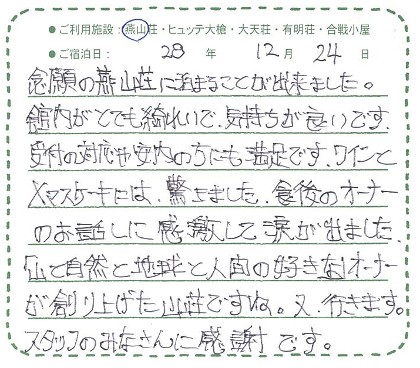 ●ご利用施設：燕山荘・ヒュッテ大槍・大天荘・有明荘・合戦小屋
●ご宿泊日： 28 年 12 月 24 日
念願の燕山荘に泊まることが出来ました。
館内がとても綺れいで、気持ちが良いです。
受付の対応や案内の方にも満足です。ワインと
Xマスケーキには、驚きました。食後のオーナー
のお話しに感激して涙が出ました。
「山と自然と地球と人間の好きな」オーナー
が創り上げた山荘ですね。又、行きます。
スタッフのみなさんに感謝です。